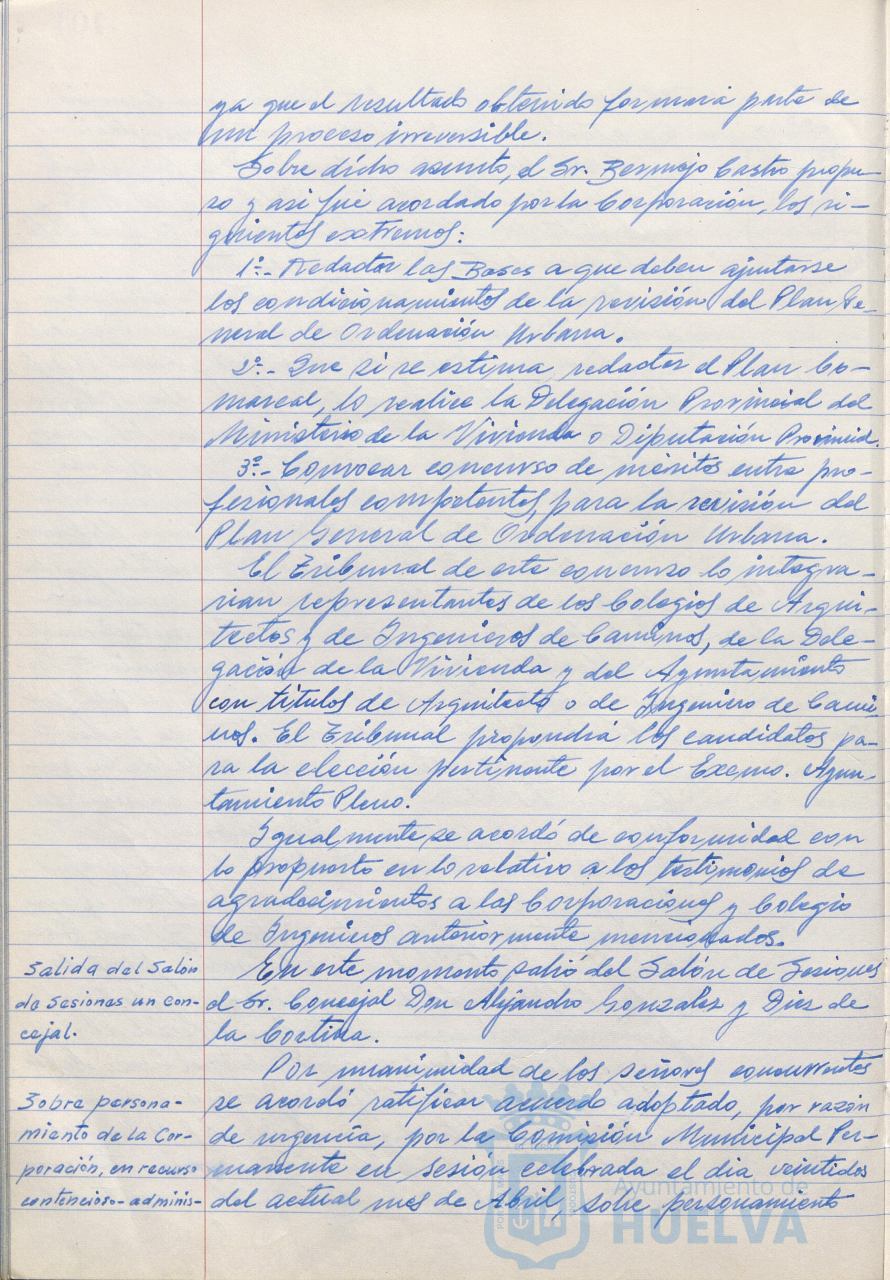 ya que el resultado obtenido formará parte de
un proceso irreversible.
Sobre dicho asunto, el Sr. Bermejo Castro propu-
so y así fué acordado por la Corporación, los si-
guientes extremos:
1º.- Redactar las Bases a que deben ajustarse
los condicionamientos de la revisión del Plan Ge-
neral de Ordenación Urbana.
2º.- Que si se estima redactar el Plan Co-
marcal, lo realice la Delegación Provincial del
Ministerio de la Vivienda o Diputación Provincial.
3º.- Convocar concurso de méritos entre pro-
fesionales competentes, para la revisión del
Plan General de Ordenación Urbana.
El Tribunal de este concurso lo integra-
rian representantes de los Colegios de Arqui-
tectos y de Ingenieros de Caminos, de la Dele-
gación de la Vivienda y del Ayuntamiento
con titulos de Arquitecto o de Ingeniero de Cami-
nos. El Tribunal propondrá los candidatos pa-
ra la elección pertinente por el Excmo. Ayun-
tamiento Pleno.
Igualmente se acordó de conformidad con
lo propuesto en lo relativo a los testimonios de
agradecimientos a las Corporaciones y Colegio
de Ingenieros anteriormente mencionados.
Salida del Salón
de Sesiones un con-
cejal.
En este momento salió del Salón de Sesiones
el Sr. Concejal Don Alejandro Gonzalez y Diez de
la Cortina.
Sobre persona-
miento de la Cor-
poración, en recurso
contencioso-adminis-
Por unanimidad de los señores concurrentes
se acordó ratificar acuerdo adoptado, por razón
de urgencia, por la Comisión Municipal Per-
manente en sesion celebrada el dia veintidos
del actual mes de Abril, sobre personamiento
Ayuntamiento de
HUELVA